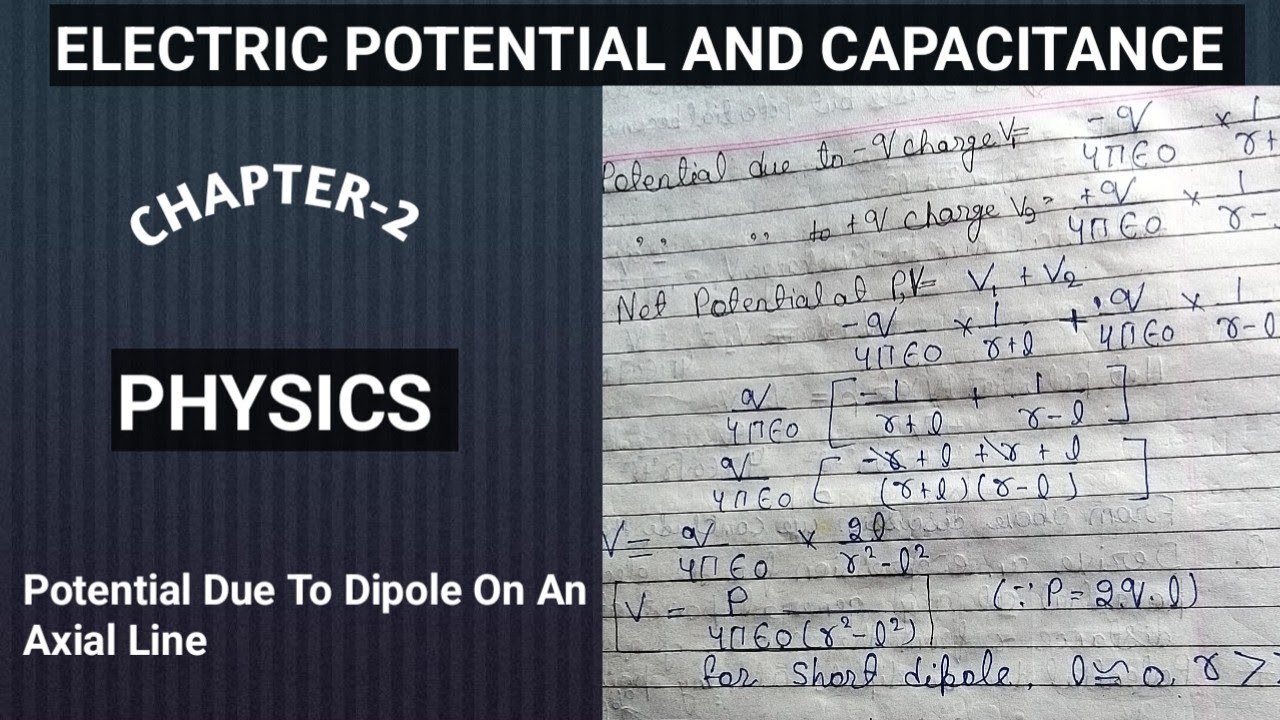 ELECTRIC POTENTIAL AND CAPACITANCE
CHAPTER-2
PHYSICS
Potential Due To Dipole On An
Axial Line
Potential due to -q charge V₁= -q/4π∈0 × 1/r+
,, ,, to +q charge V₂= +q/4π∈0 × 1/r-
Net Potential at P,V= V₁ + V₂
-q/4π∈0 × 1/r+l + q/4π∈0 × 1/r-l
q/4π∈0 [-1/r+l + 1/r-l]
q/4π∈0 [-r+l+r+l/(r+l)(r-l)]
V= q/4π∈0 × 2l/r²-l²
V = P/4π∈0(r²-l²) (∵ P = 2q.l)
for short dipole, l≃0, r >